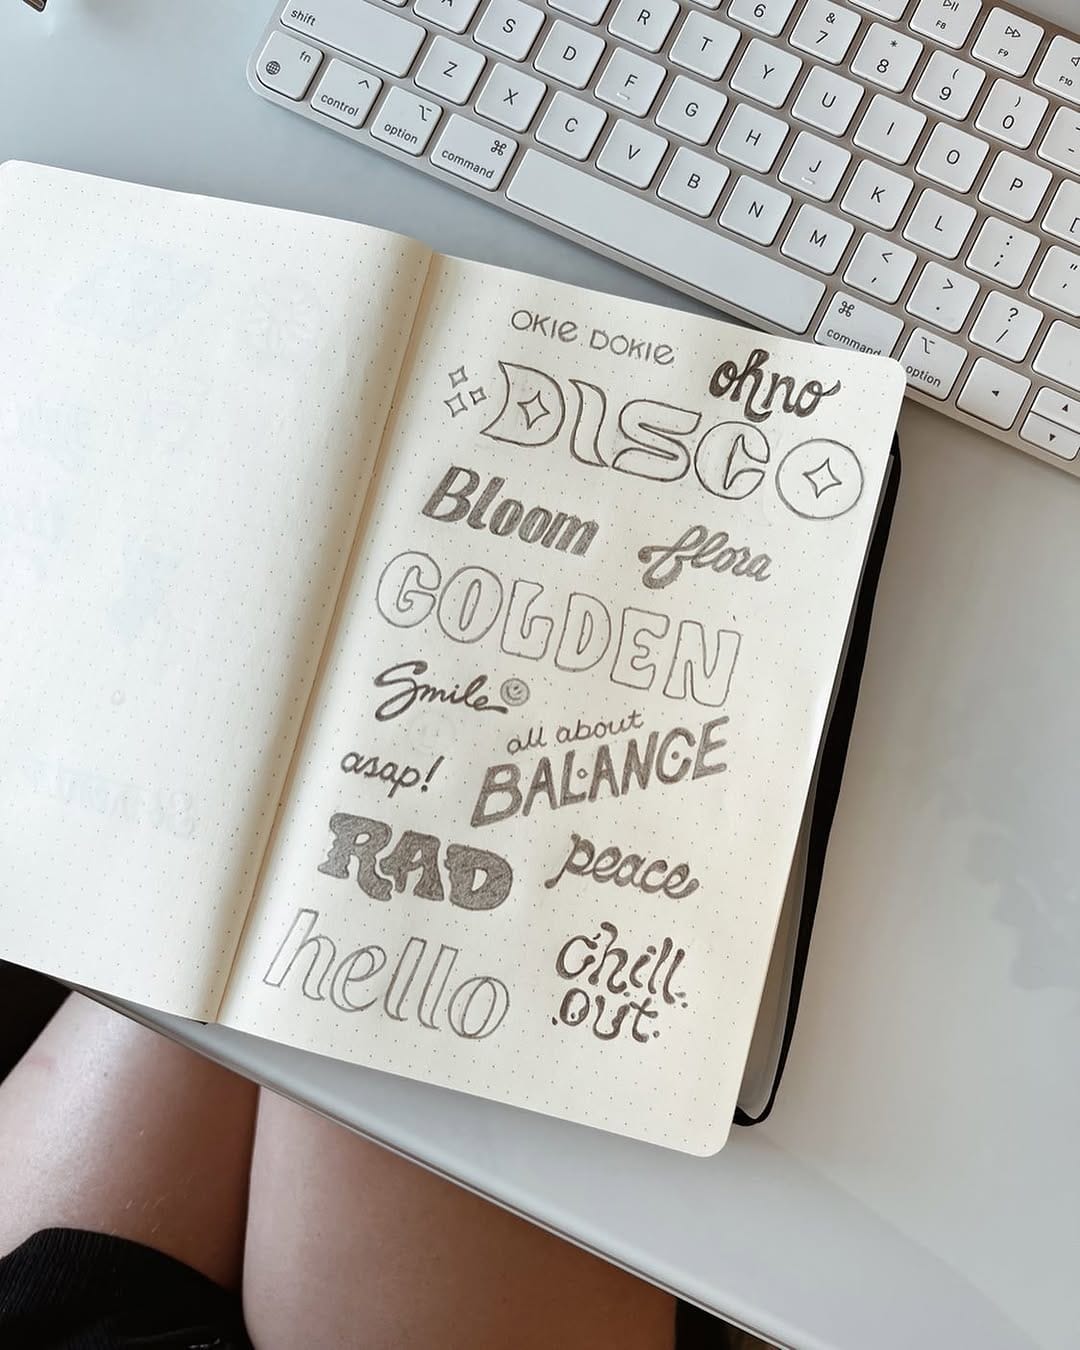 shift
A
S
D
F
G
H
J
K
L
: ;
" '
R
T
Y
U
I
O
P
[
6
& 7
* 8
( 9
) 0
-
F8
F9
F10
fn
control
option
command
Z
X
C
V
B
N
M
< ,
> .
? /
command
option
OKIE DOKIE
oh no
DISCO
Bloom
flora
GOLDEN
Smile
all about
BALANCE
asap!
RAD
peace
hello
chill
.out.